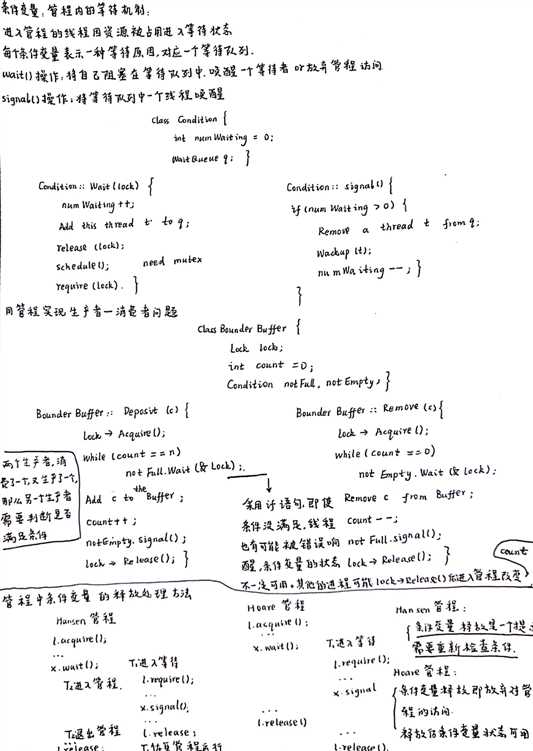 条件变量:管程内的等待机制:
进入管程的线程因资源被占用进入等待状态
每个条件变量表示一种等待原因,对应一个等待队列.
wait()操作:将自己阻塞在等待队列中.唤醒一个等待者 or 放弃管程访问
signal()操作:将等待队列中一个线程唤醒
Class Condition {
int numWaiting = 0;
WaitQueue q; }
Condition:: Wait (lock) {
numWaiting ++;
Add this thread t to q;
release (lock);
schedule();  need mutex
require (lock). }
Condition:: signal() {
if (numWaiting > 0) {
Remove a thread t from q;
Wackup (t);
numWaiting --; }
}
用管程实现生产者—消费者问题
Class Bounder Buffer {
Lock lock;
int count = 0;
Condition notFull, notEmpty; }
Bounder Buffer:: Deposit (c) {
lock → Acquire();
while (count == n)
not Full.Wait (& Lock);
Add c to the Buffer;
count ++;
notEmpty.signal();
lock → Release(); }
两个生产者,消
费了一个,又生产了一个,
那么另一个生产者
需要判断是否
满足条件
Bounder Buffer:: Remove (c) {
lock → Acquire();
while (count == 0)
not Empty.Wait (& lock);
Remove c from Buffer;
count --;
not Full.signal();
lock → Release(); }
条件没满足,线程
也有可能被错误响
醒,条件变量的状态
不一定可用。其他的进程可能 lock→Release()后进入管程改变
count
管程中条件变量的释放处理方法
Hansen 管程
l.acquire();
...
x.wait();  T₁进入等待
T₂进入管程.  l.require();
...
x.signal().
...
T₂退出管程  l.release;
l.release;
Hoare 管程
l.acquire();
...
x.wait();  T₁进入等待
l.require();
...
x.signal
...
l.release()
l.release().
Hansen 管程:
条件变量释放是一个提
需要重新检查条件.
Hoare 管程:
条件变量释放即放弃对管
程的访问.
释放后条件变量状态可用